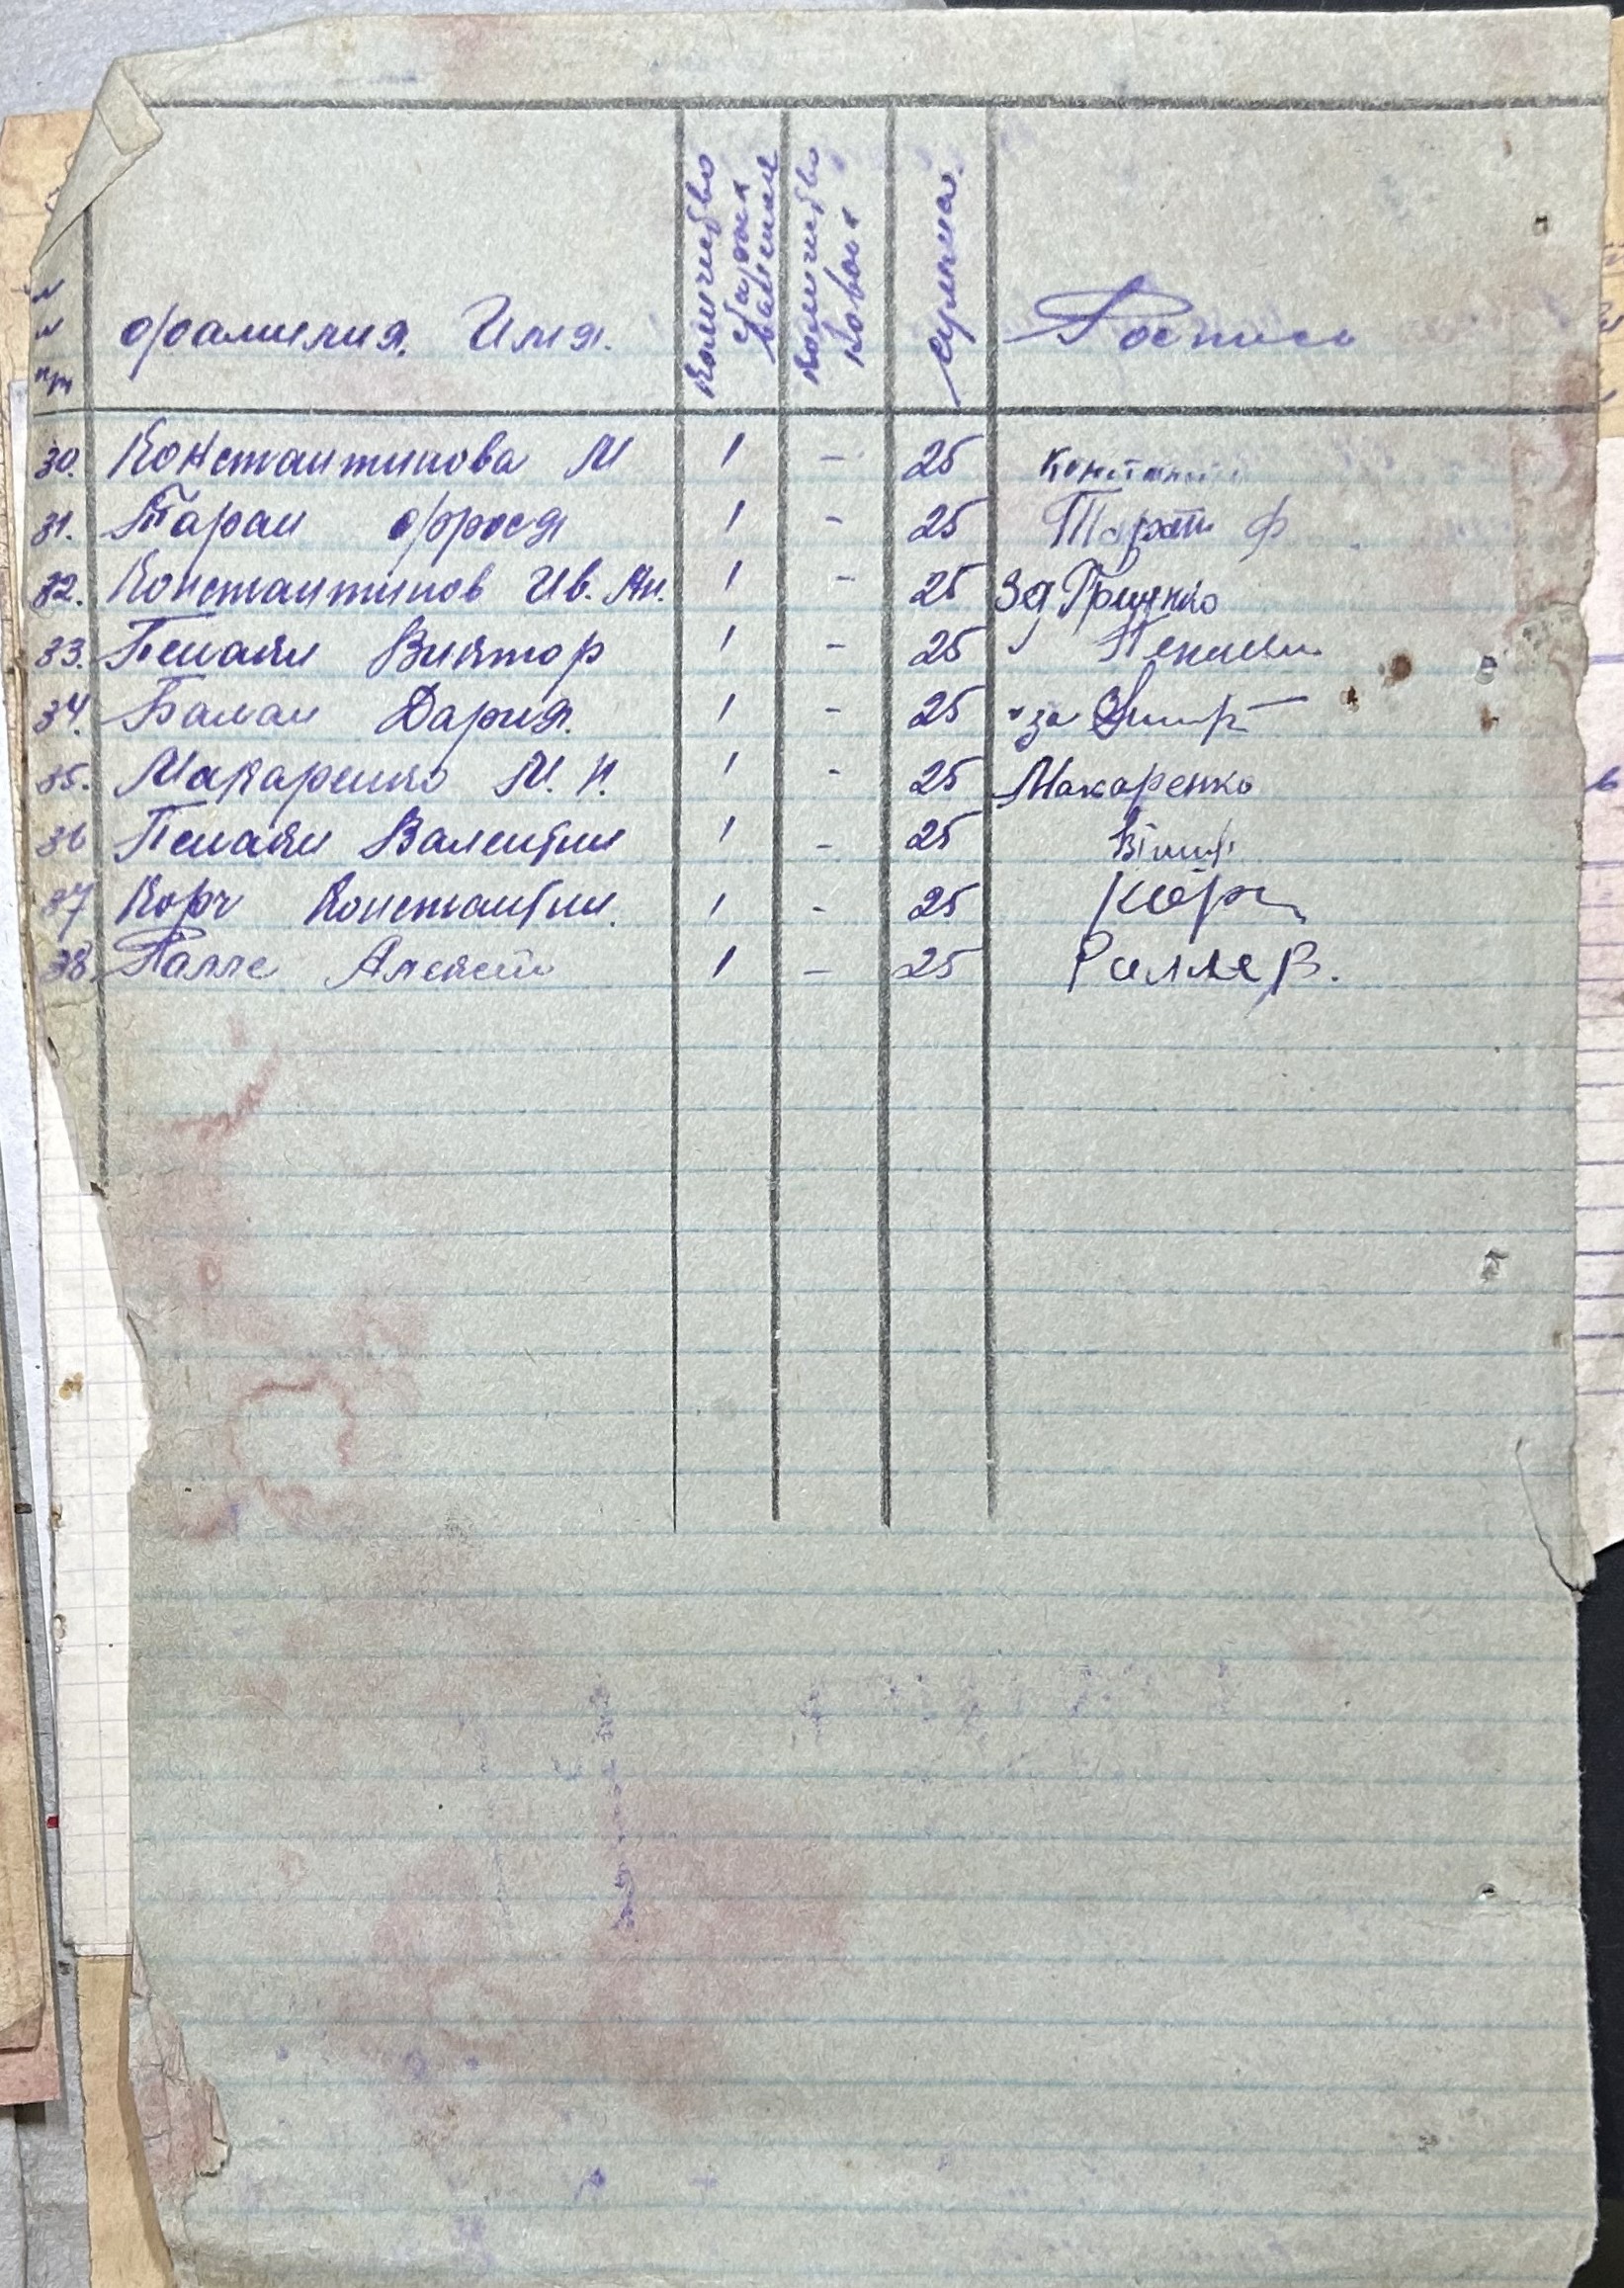 фамилия. Имя. Количество Количество Сумма. Роспись
30. Константинова М 1 - 25
31. Таран Фрося 1 - 25 Таран Ф
32. Константинов Ив. Ан. 1 - 25 За Гриценко
33. Пенаки Виктор 1 - 25
34. Балан Дария. 1 - 25 за
35. Макаренко М. И. 1 - 25 Макаренко
36 Пенаки Валентин 1 - 25
37 Корч Константин. 1 - 25 Корч
38. Ралле Алексей 1 - 25 Ралле В.